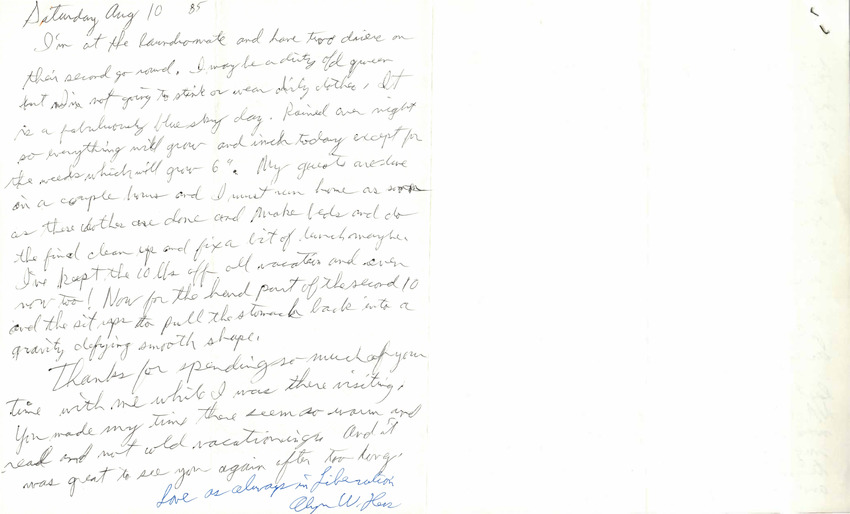 Saturday Aug 10 85
I'm at the laundromate and have two driers on
their second go round. I may be a dirty old queen
but I'm not going to stink or wear dirty clothes. It
is a fabulously blue sky day. Rained over night
so everything will grow and inch today except for
the weeds which will grow 6". My guests are due
in a couple hours and I must run home as soon
as these clothes are done and make beds and do
the final clean up and fix a bit of lunch maybe.
I've kept the 10 lbs off all vacation and even
now too! Now for the hard part of the second 10
and the sit ups to pull the stomach back into a
gravity defying smooth shape.
Thanks for spending so much of your
time with me while I was there visiting.
You made my time there seem so warm and
real and not cold vacationing. And it
was great to see you again after too long.
Love as always in Liberation
W.